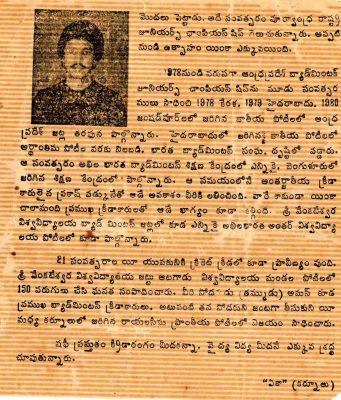 మొదలు పెట్టాడు. అదే సంవత్సరం పూర్వాంధ్ర రాష్ట్ర
జూనియర్స్ ఛాంపియన్ షిప్ గెలుచుకున్నారు. అప్పటి
నుండి ఉత్సాహం యింకా ఎక్కువయింది.
1978నుండి వరుసగా ఆంధ్రప్రదేశ్ బ్యాడ్‌మింటన్
జూనియర్స్ ఛాంపియన్ షిప్‌ను మూడు సంవత్సర
ములు సాధించి 1978 కేరళ, 1979 హైదరాబాదు, 1980
జంషడ్‌పూర్‌లలో జరిగిన జాతీయ పోటీలలో ఆంధ్ర
ప్రదేశ్ జట్ల తరఫున పాల్గొన్నారు. హైదరాబాదులో జరిగిన జాతీయ పోటీలలో
అర్థాంతిమ పోటీల వరకు నిలబడి, భారత బ్యాడ్‌మింటన్ సంఘ దృష్టిలో పడ్డారు.
ఆ సంవత్సరం అఖిల భారత బ్యాడ్‌మింటన్ శిక్షణ కేంద్రంలో ఎన్నికై, బెంగుళూరులో
జరిగిన శిక్షణ కేంద్రంలో పాల్గొన్నారు. ఆ సమయంలోనే అంతర్జాతీయ క్రీడా
కారులైన ప్రకాష్ పడ్కునేతో ఆడే అవకాశం వీరికి లభించింది. వారే కాకుండా యింకా
చాలామంది ప్రముఖ క్రీడాకారులతో ఆడే భాగ్యం కూడా కల్గింది. శ్రీ వేంకటేశ్వర
విశ్వవిద్యాలయ బ్యాడ్ మింటన్ జట్లులో కూడ ఎన్నికై అఖిలభారత అంతర్ విశ్వవిద్యా
లయ పోటీలలో కూడా పాల్గొన్నారు.
21 సంవత్సరాల యీ యువకునికి క్రికెట్ క్రీడలో కూడా ప్రావీణ్యం వుంది.
శ్రీ వేంకటేశ్వర విశ్వవిద్యాలయ జట్టు ఆటగాడు. విశ్వవిద్యాలయ మండల పోటీలలో
150 పరుగులు చేసి ఘనత సంపాదించారు. వీరి సోదరుడు (తమ్ముడు) అమన్ కూడ
ప్రముఖ బ్యాడ్‌మింటన్ క్రీడాకారులు. అటువంటి తన సోదరుని జంటగా తీసుకుని యీ
మధ్య కర్నూలులో జరిగిన రాయలసీమ ప్రాంతీయ పోటీలలో విజయం సాధించారు.
షఫీ ప్రస్తుతం క్రీడారంగం మీదకన్నా, వైద్య విద్య మీదనే ఎక్కువ శ్రద్ధ
చూపుతున్నారు.
(కర్నూలు)